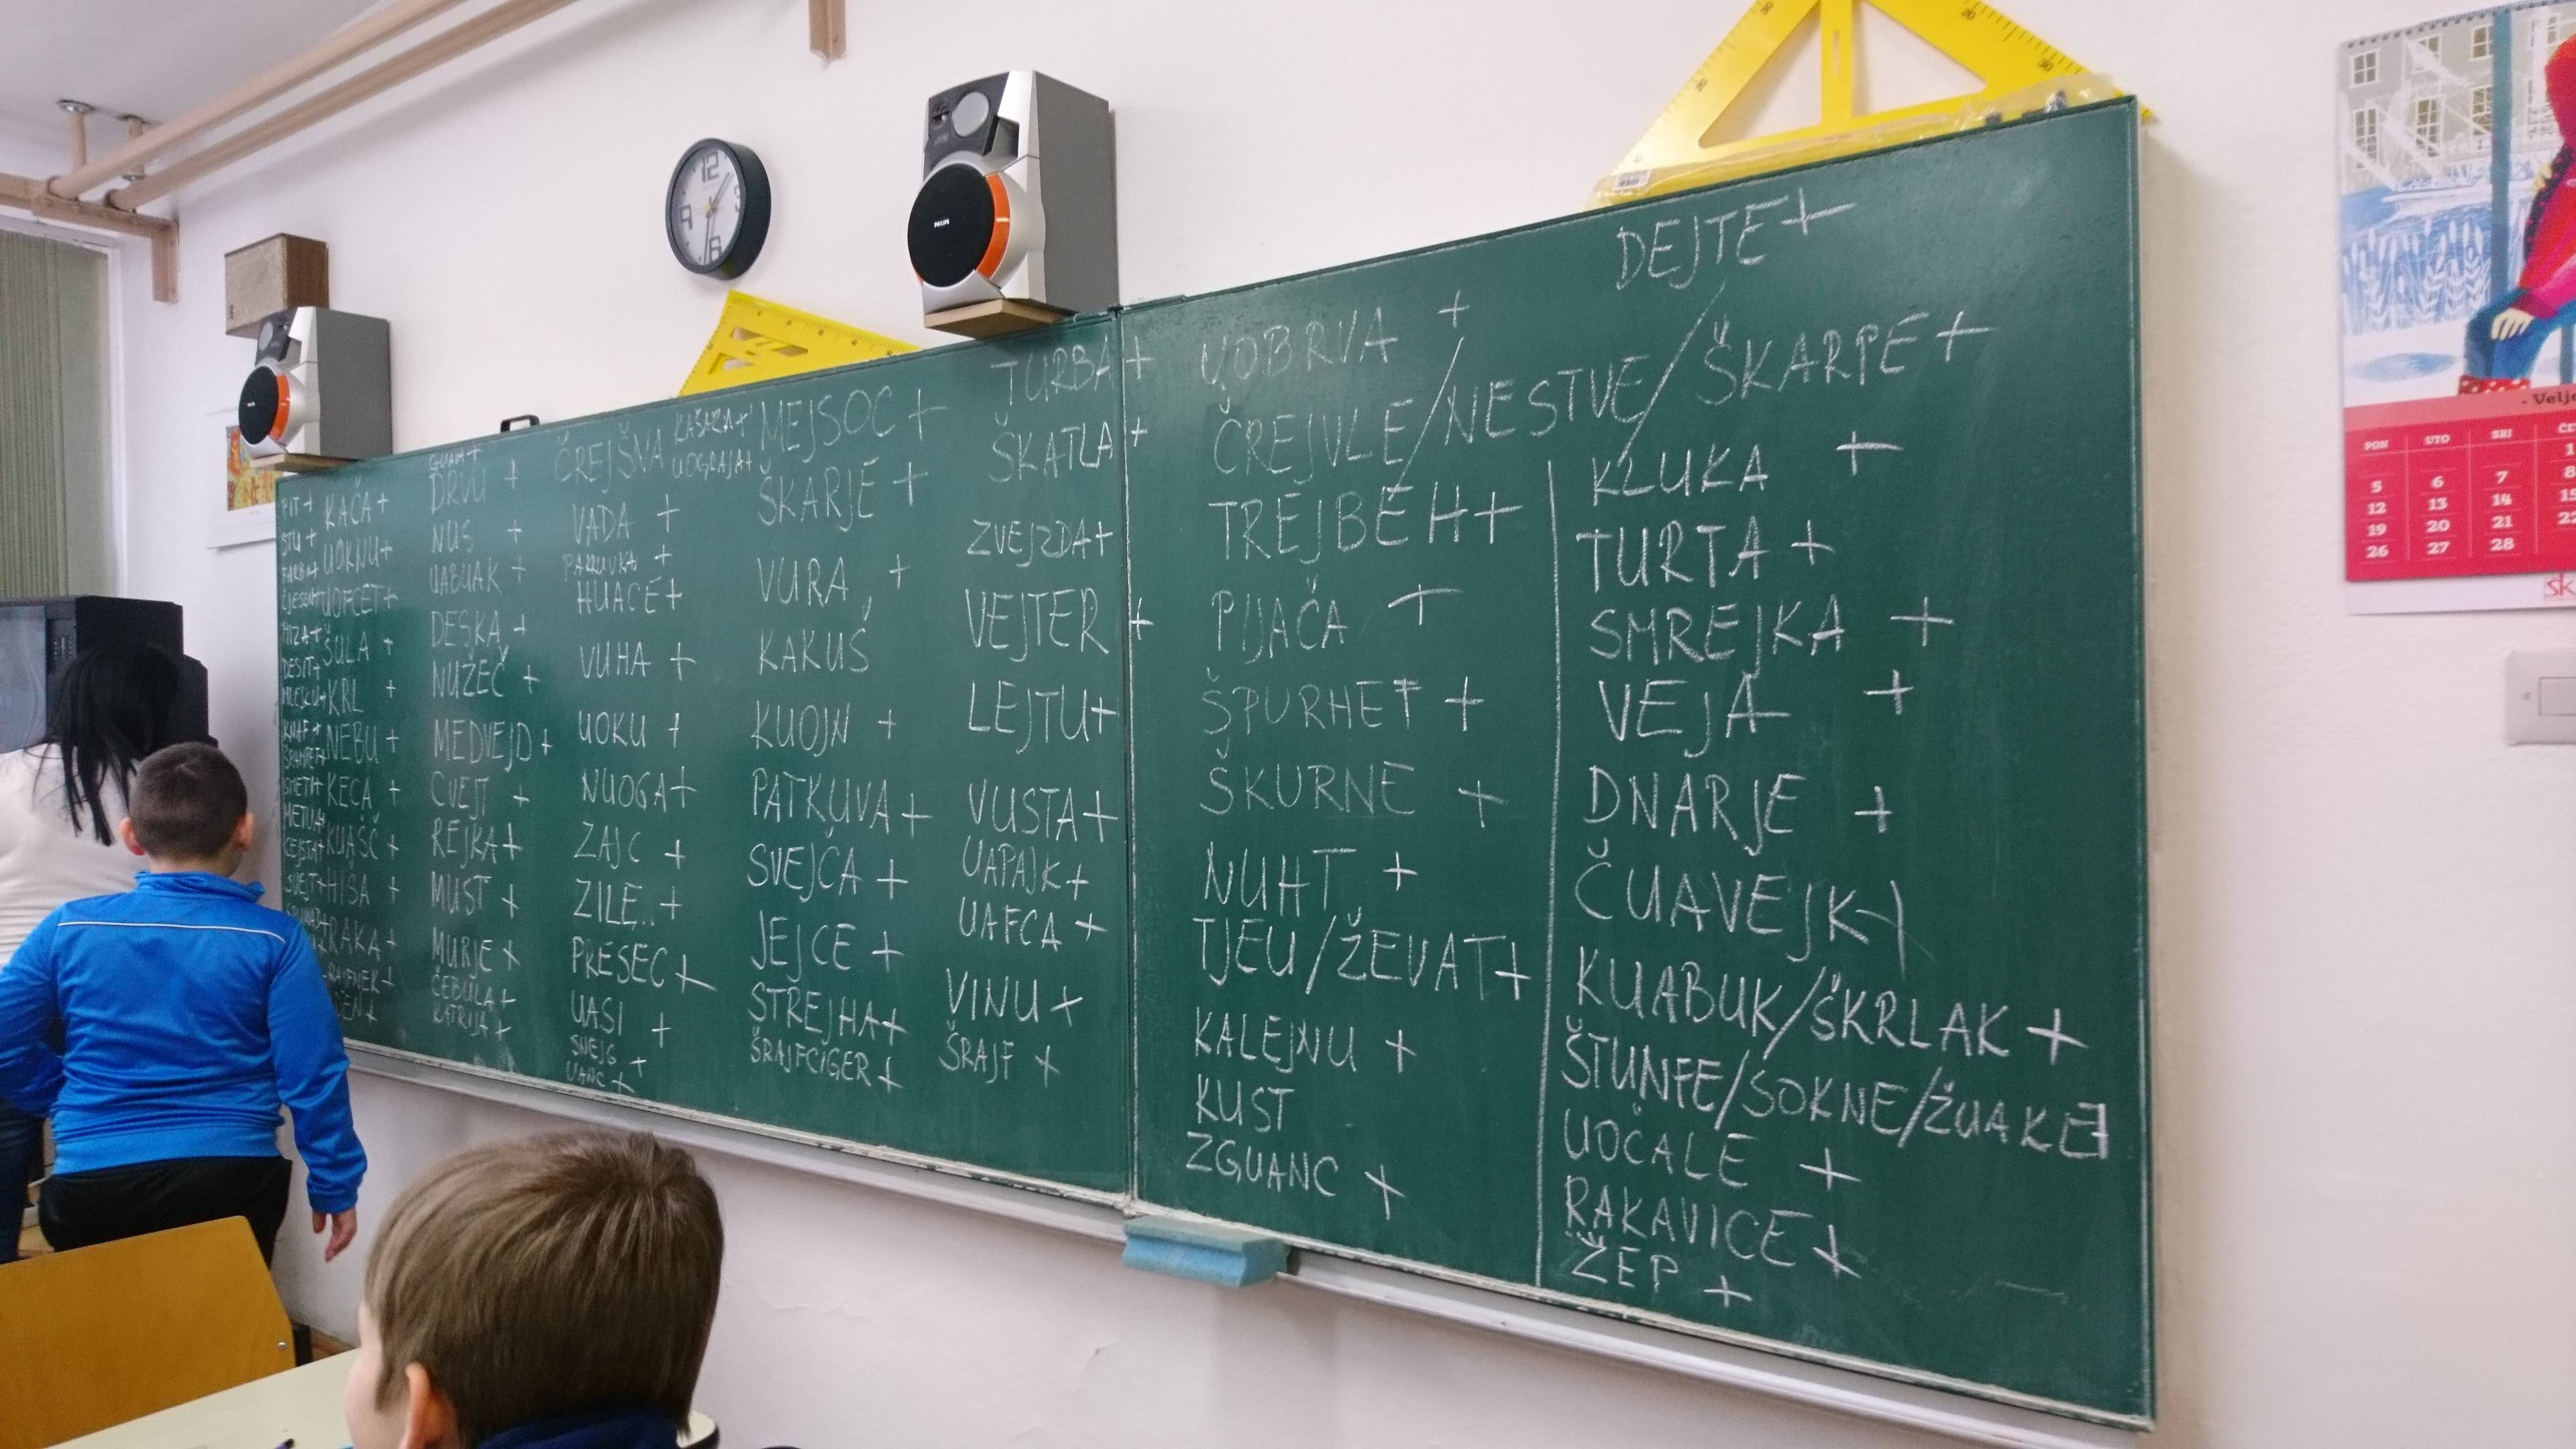 PIT+
STU +
FARBA+
MIZA+
DESIT+
MLEKU+
KNAF+
ŠPAMPET+
SMETI+
METUA+
CEJSTA+
SVET+
KAČA+
UOKNU+
UOFCET+
ŠULA +
KRL +
NEBU +
KECA +
KUAŠČ +
HIŠA +
RAKA+
GUAM+
DRVU +
NUS +
UABUAK +
DESKA +
NUŽEČ +
MEDVEJD+
CVEJT +
REJKA+
MUST +
MURJE +
ČEBULA+
KATRIJA +
ČREJŠNA
VADA +
HUAČE+
VUHA +
UOKU +
NUOGA+
ZAJC +
ZILE.. +
PRESEC+
UASI +
SNEJG +
UANC +
KAŠARA+
UOGRAJA+
MEJSOC+
ŠKARJE +
VURA +
KAKUŠ
KUOJN +
PATKUVA+
SVEJČA +
JEJCE +
STREJHA+
ŠRAJFCIGER+
TURBA+
ŠKATLA+
ZVEJZDA+
VEJTER +
LEJTU+
VUSTA+
UAPAJK+
UAFCA +
VINU+
ŠRAJF +
DEJTE+
UOBRVA +
ČREJVLE/NESTVE/ŠKARPE+
TREJBEH+
PIJAČA +
ŠPURHET +
ŠKURNE +
NUHT +
TJEU/ŽEVAT+
KALEJNU +
KUST
ZGUANC +
KLUKA +
TURTA +
SMREJKA +
VEJA +
DNARJE +
ČUAVEJK+
KUABUK/ŠKRLAK +
ŠTUNFE/SOKNE/ŽUAKE+
UOČALE +
RAKAVICE+
ŽEP +
12
3
6
9
PHILIPS
- Velj
PON UTO SRI
1
5 6 7 8
12 13 14 15
19 20 21 22
26 27 28
sk